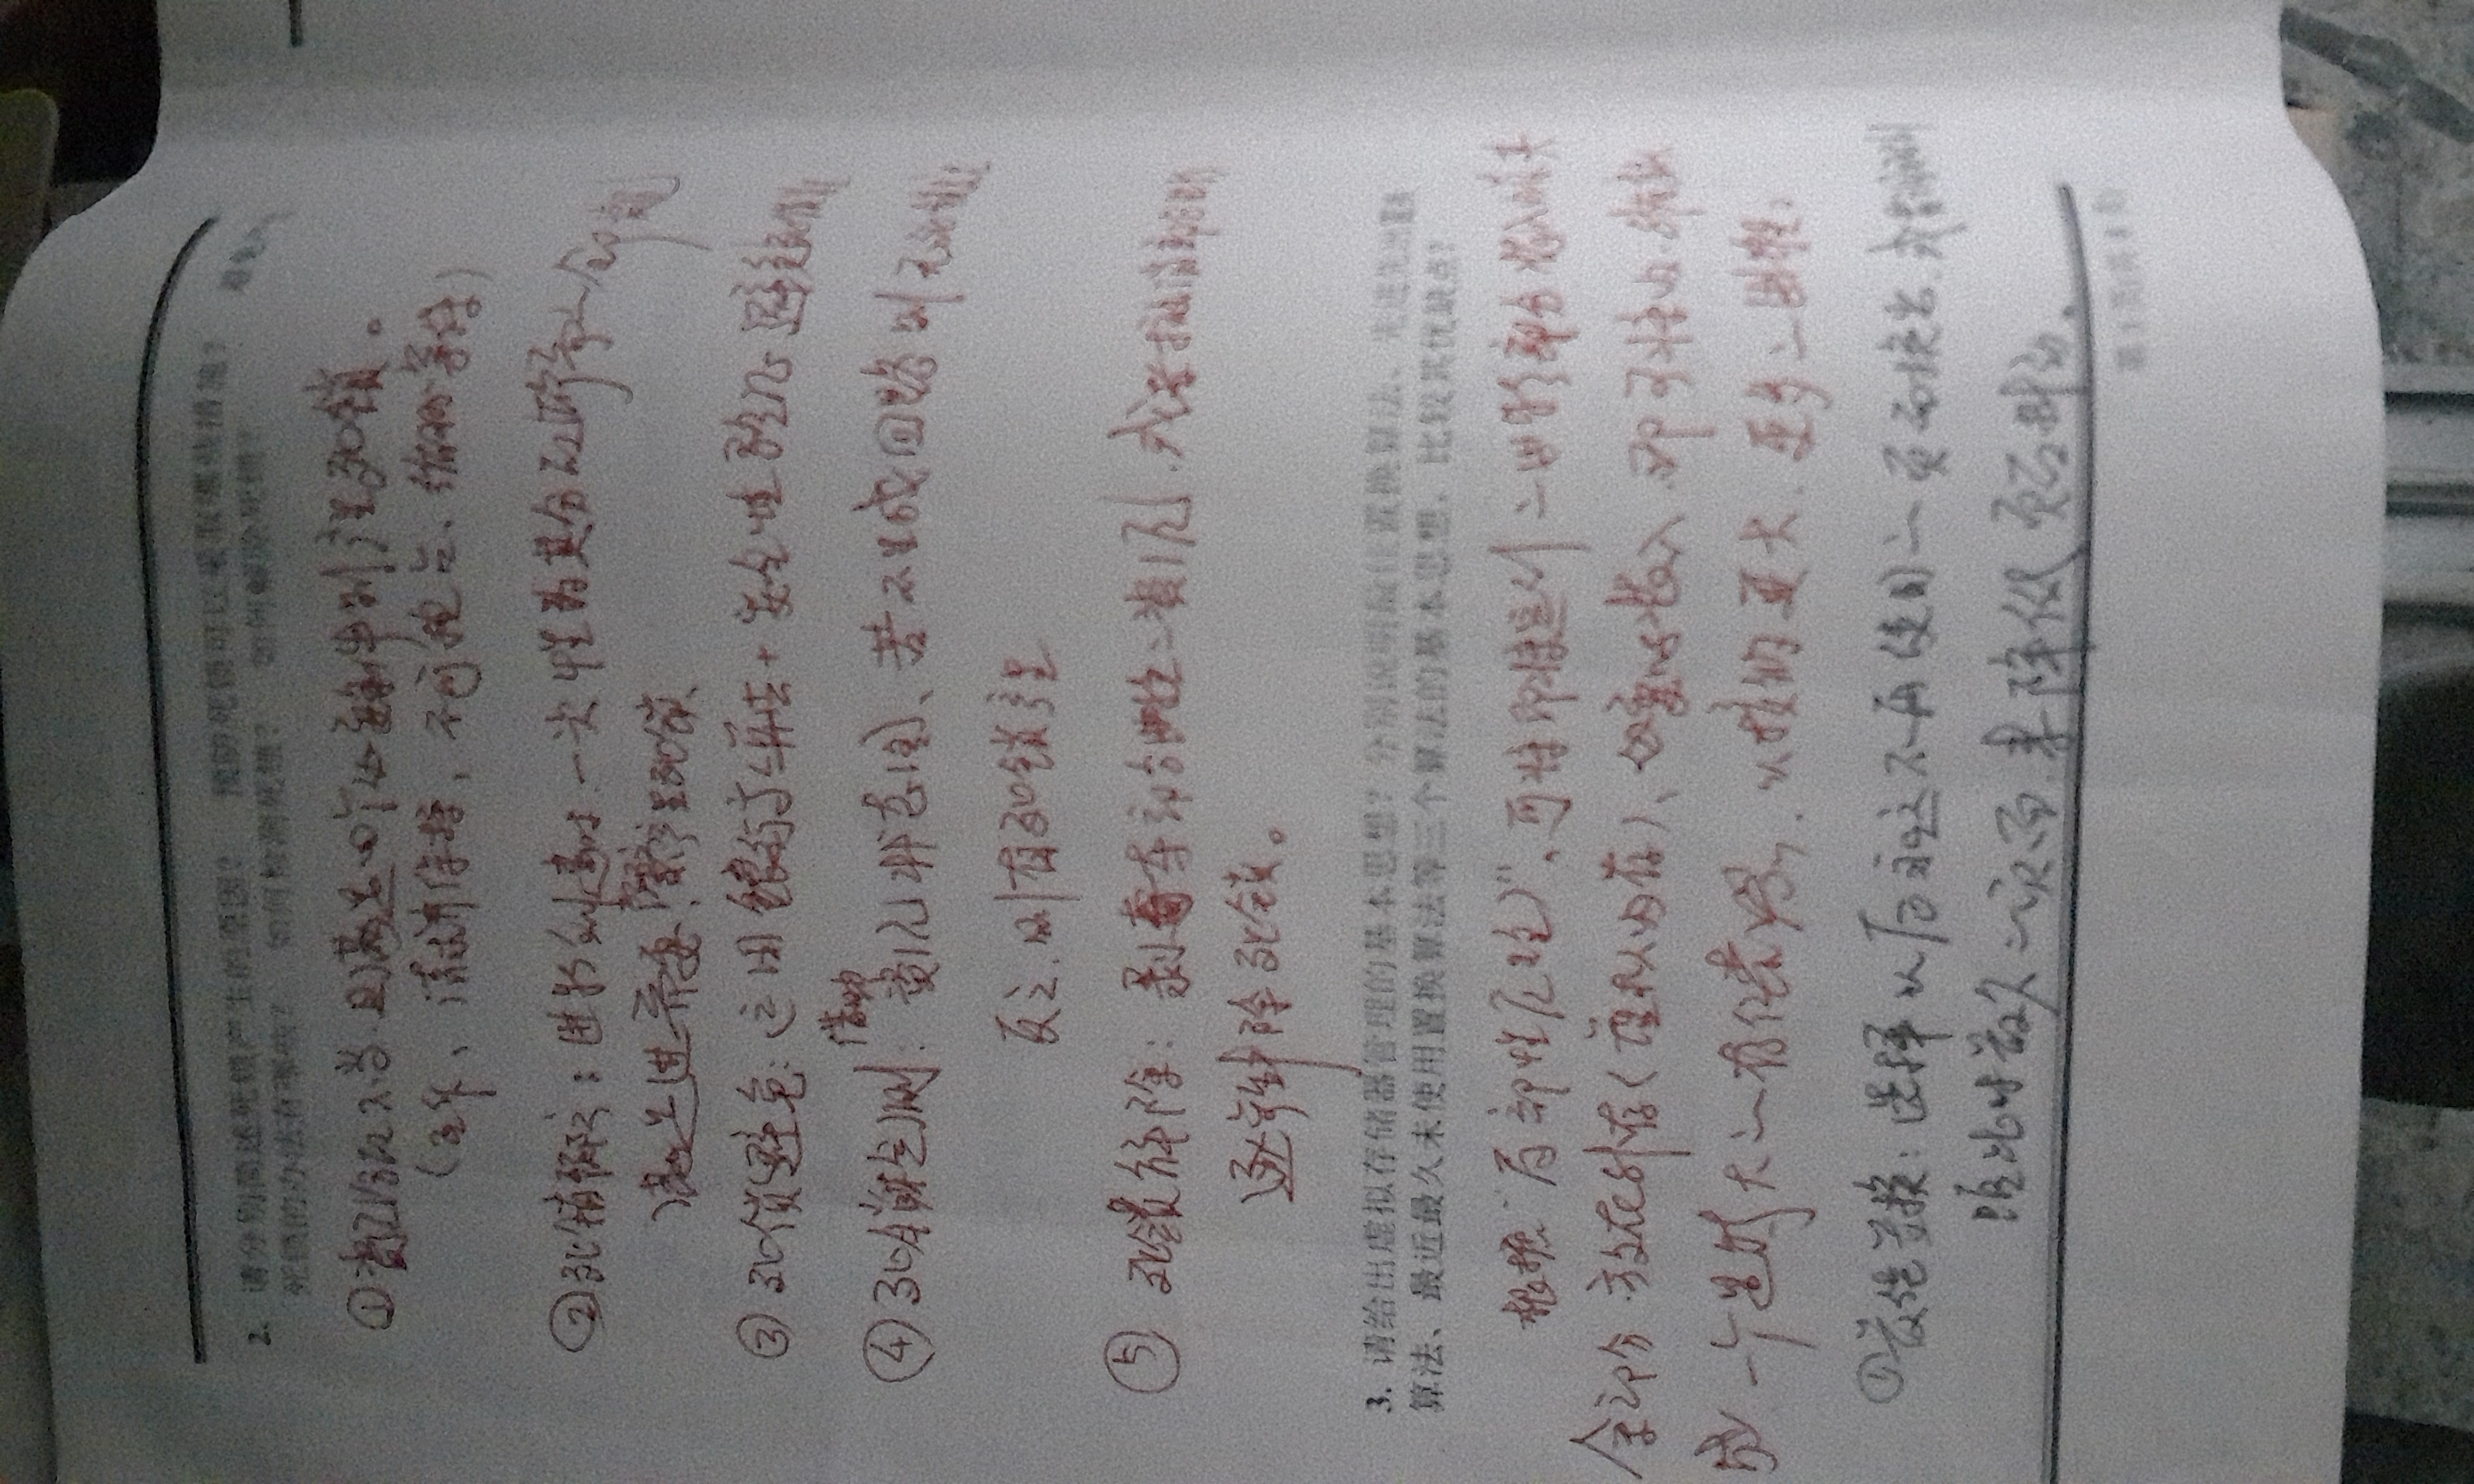 2. 请分别简述死锁产生的原因? 预防死锁可以采取哪些措施? 避免
死锁的办法有哪些? 如何检测死锁? 如何解除死锁?
①资源分配不当 且满足四个必要条件则产生死锁。
(互斥、请求保持, 不可抢占、循环等待)
②死锁预防: 进程创建时 一次性为其分配所需的全部
满足进 需要 产生死锁
③死锁避免: 运用银行家算法+安全性验证 避免死锁
④死锁检测: 借助 资源状态图、若不生成回路则无死锁
反之, 则有死锁产生
⑤ 死锁解除: 剥夺 部分 的资源, 或者撤消部分
逐步解除死锁。
3. 请给出虚拟存储器管理的基本思想? 分别说明最佳置换算法、先进先出置换
算法、最近最久未使用置换算法等三个算法的基本思想, 比较其优缺点?
根据“局部性原理”, 可将即将运行的进程部分装入 其
余部分 放在外存(虚拟内存)、必要时装入 即可将内
成 一个足够大的存储器, 以接纳更大, 更多的进程.
①最佳置换: 选择以后永远不再使用的页面换出, 或者
距此时最久的页面, 来降低 页